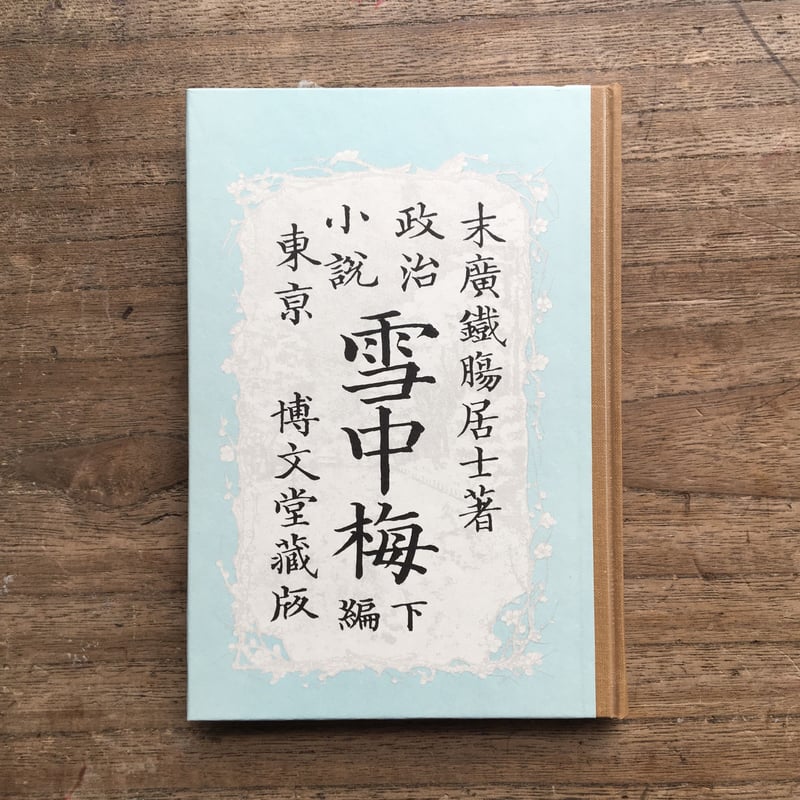 末廣鐵膓居士著
政治
小說
雪中梅
下
編
東亰
博文堂藏版